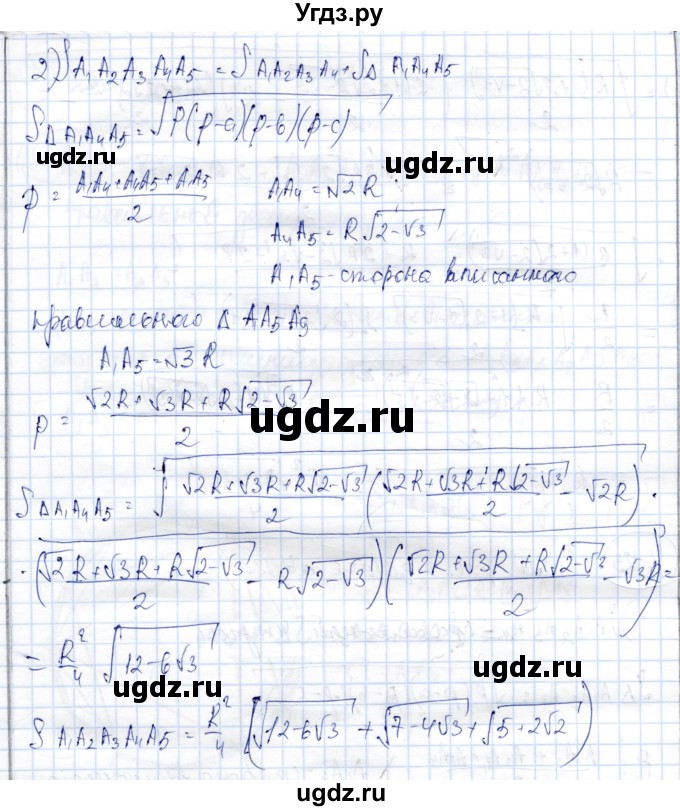 Угдз.ру
2) S A₁A₂A₃A₄A₅ = S A₁A₂A₃A₄ + S△ A₁A₄A₅
S△A₁A₄A₅ = √(P(p-a)(p-b)(p-c))
p = (A₁A₄+A₄A₅+A₁A₅)/2
A₁A₄ = √2 R
A₄A₅ = R√(2-√3)
A₁A₅ - сторона вписанного
правильного △ AA₅A₉
A₁A₅ = √3 R
p = (√2R + √3R + R√(2-√3))/2
ugdz.ru
ugdz.ru ugdz.ru
S△A₁A₄A₅ = √((√2R+√3R+R√(2-√3))/2 ((√2R+√3R+R√(2-√3))/2 - √2R) ·
· ((√2R+√3R+R√(2-√3))/2 - R√(2-√3)) ((√2R+√3R+R√(2-√3))/2 - √3R) =
= R²/4 √(12-6√3)
ugdz.ru
ugdz.ru
S A₁A₂A₃A₄A₅ = R²/4 (√(12-6√3) + √(7-4√3) + √(5+2√2))
ugdz.ru ugdz.ru